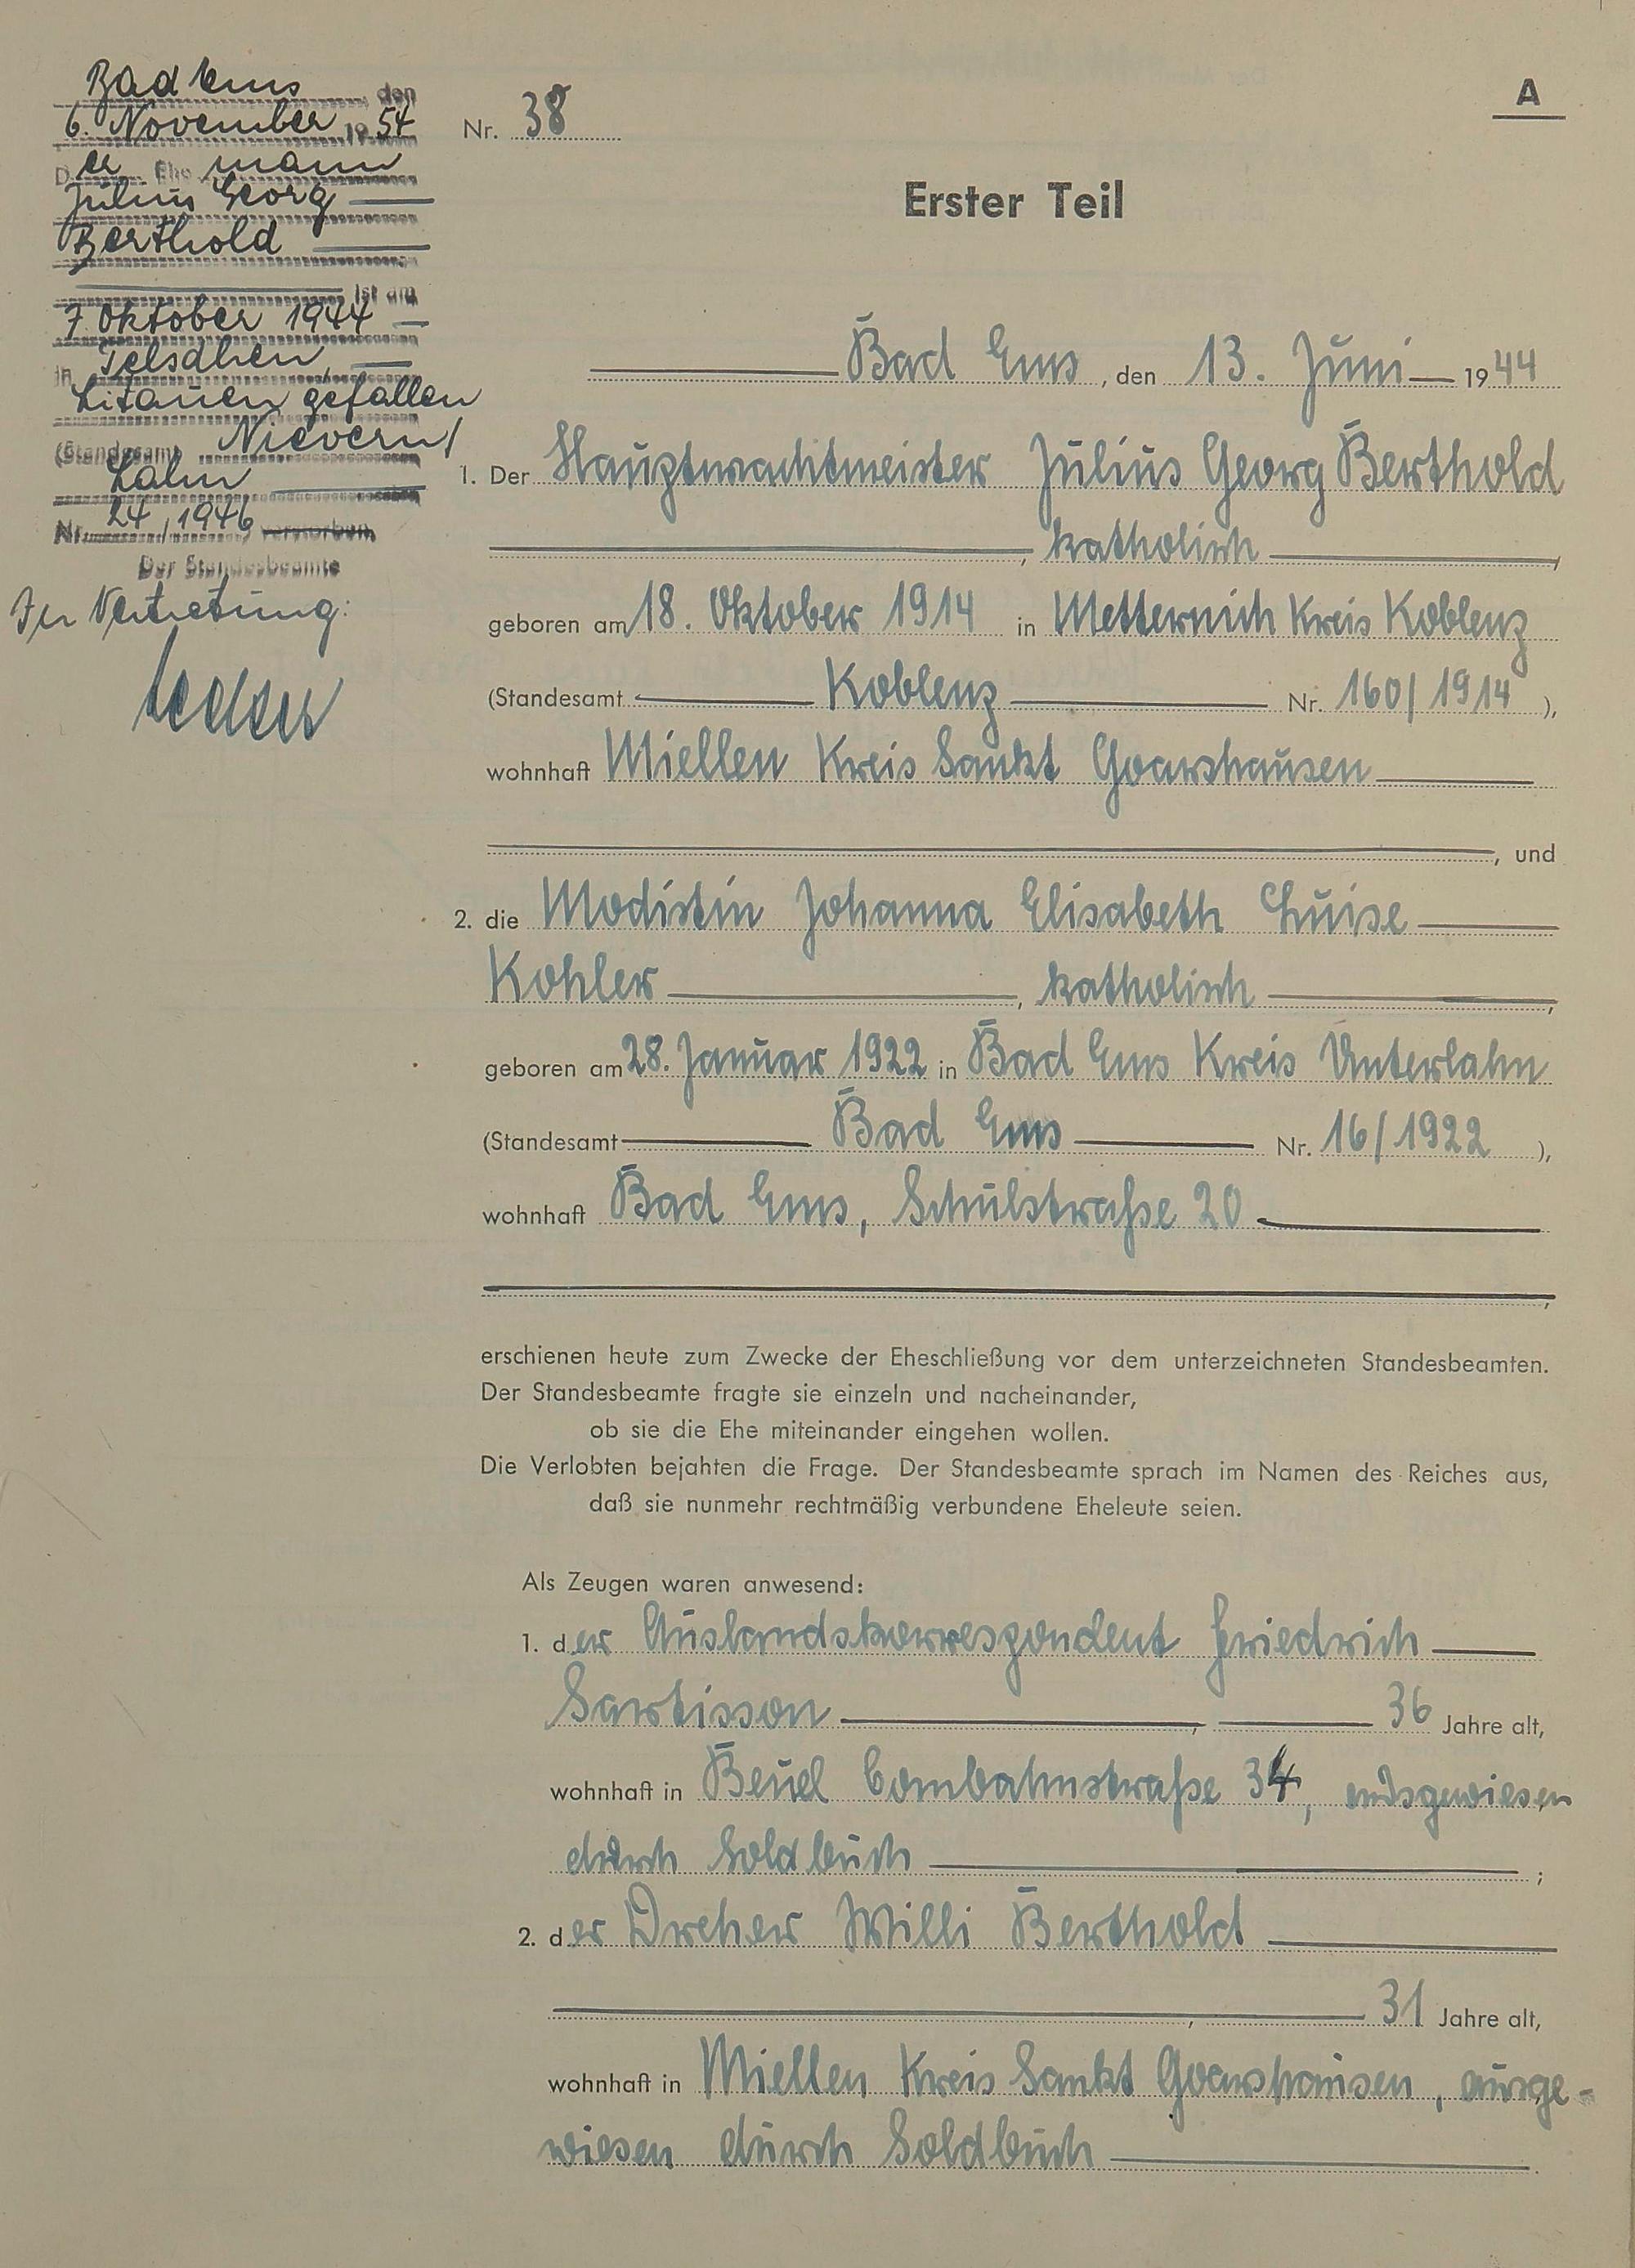 Bad Ems, den
6. November 1954
Der Ehemann
Julius Georg
Berthold
ist am
7. Oktober 1944
in Telschen,
Litauen gefallen
(Standesamt Nievern/
Lahn
Nr. 24/1946 verstorben
Der Standesbeamte
In Vertretung:
A
Nr. 38
Erster Teil
Bad Ems, den 13. Juni 1944
1. Der Hauptwachtmeister Julius Georg Berthold
, katholisch,
geboren am 18. Oktober 1914 in Metternich Kreis Koblenz
(Standesamt Koblenz Nr. 160/1914),
wohnhaft Miellen Kreis Sankt Goarshausen
, und
2. die Modistin Johanna Elisabeth Luise
Kohler, katholisch,
geboren am 28. Januar 1922 in Bad Ems Kreis Unterlahn
(Standesamt Bad Ems Nr. 16/1922),
wohnhaft Bad Ems, Schulstraße 20
,
erschienen heute zum Zwecke der Eheschließung vor dem unterzeichneten Standesbeamten.
Der Standesbeamte fragte sie einzeln und nacheinander,
ob sie die Ehe miteinander eingehen wollen.
Die Verlobten bejahten die Frage. Der Standesbeamte sprach im Namen des Reiches aus,
daß sie nunmehr rechtmäßig verbundene Eheleute seien.
Als Zeugen waren anwesend:
1. der Auslandskorrespondent Friedrich
Sartisson, 36 Jahre alt,
wohnhaft in Beuel Combahnstraße 34, ausgewiesen
durch Soldbuch;
2. der Dreher Willi Berthold
, 31 Jahre alt,
wohnhaft in Miellen Kreis Sankt Goarshausen, ausge-
wiesen durch Soldbuch.